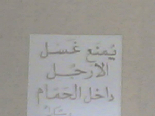 يمنع غسل
الأرجل
داخل الحمام